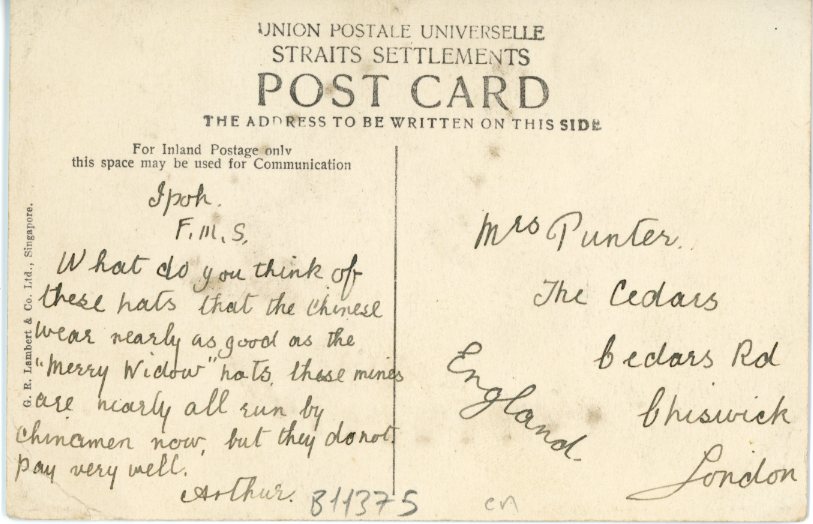 UNION POSTALE UNIVERSELLE
STRAITS SETTLEMENTS
POST CARD
THE ADDRESS TO BE WRITTEN ON THIS SIDE
For Inland Postage only
this space may be used for Communication
G. R. Lambert & Co. Ltd., Singapore.
Ipoh.
F.M.S.
What do you think of
these hats that the chinese
wear nearly as good as the
"Merry Widow" hats, these mines
are nearly all run by
chinamen now, but they do not
pay very well.
Arthur.
Mrs Punter.
The Cedars
Cedars Rd
Chiswick
London
England.
811375
cn